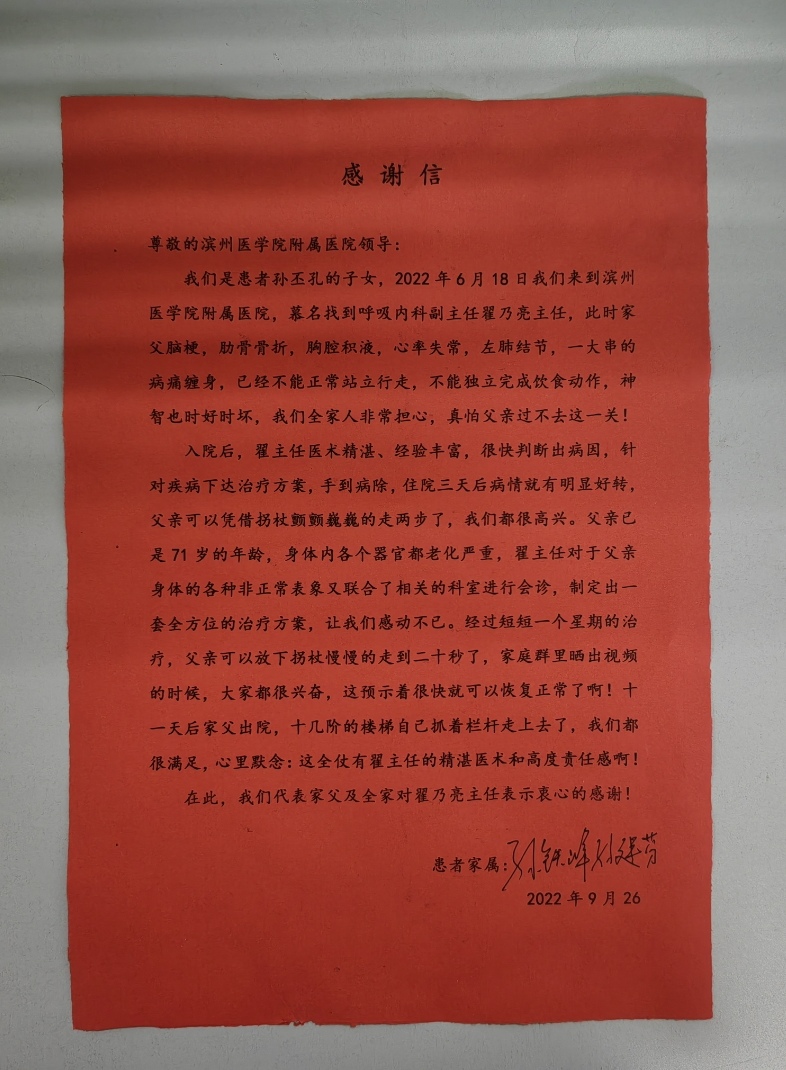 感谢信
尊敬的滨州医学院附属医院领导：
我们是患者孙丕孔的子女，2022年6月18日我们来到滨州
医学院附属医院，慕名找到呼吸内科副主任翟乃亮主任，此时家
父脑梗，肋骨骨折，胸腔积液，心率失常，左肺结节，一大串的
病痛缠身，已经不能正常站立行走，不能独立完成饮食动作，神
智也时好时坏，我们全家人非常担心，真怕父亲过不去这一关！
入院后，翟主任医术精湛、经验丰富，很快判断出病因，针
对疾病下达治疗方案，手到病除，住院三天后病情就有明显好转，
父亲可以凭借拐杖颤颤巍巍的走两步了，我们都很高兴。父亲已
是71岁的年龄，身体内各个器官都老化严重，翟主任对于父亲
身体的各种非正常表象又联合了相关的科室进行会诊，制定出一
套全方位的治疗方案，让我们感动不已。经过短短一个星期的治
疗，父亲可以放下拐杖慢慢的走到二十秒了，家庭群里晒出视频
的时候，大家都很兴奋，这预示着很快就可以恢复正常了啊！十
一天后家父出院，十几阶的楼梯自己抓着栏杆走上去了，我们都
很满足，心里默念：这全仗有翟主任的精湛医术和高度责任感啊！
在此，我们代表家父及全家对翟乃亮主任表示衷心的感谢！
患者家属：
2022年9月26